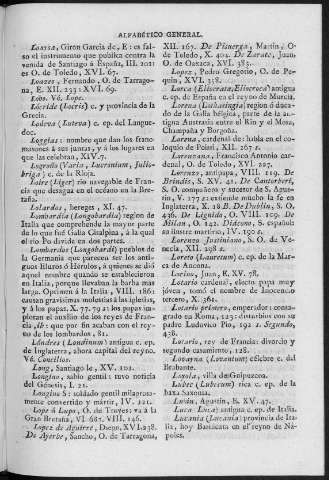 ALFABÉTICO GENERAL.
Loaisa, Giron Garcia de, E: es fal-
so el instrumento que publica contra la
venida de Santiago á España, III. 2021
es O. de Toledo, XVI. 67.
Loazes, Fernando, O. de Tarrago-
na, E. XII. 233: XVI. 69.
Lobo. Vé, Lope.
Lócride (Locris) c. y provincia de la
Grecia.
Lodeva (Luteva) c. ep. del Langue-
doc.
Loggias: nombre que dan los franc-
masones á sus juntas, y á los lugares en
que las celebran, XIV. 7.
Logroño (Varia, Lucronium, Julio-
briga) c. de la Rioja.
Loire (Liger) rio navegable de Fran-
cia que desagua en el océano en la Bre-
taña.
Lolardos, hereges, XI. 47.
Lombardía (Longobardia) region de
Italia que comprehende la mayor parte
de lo que fué Galia Cisalpina, á la qual
el rio Po divide en dos partes.
Lombardos (Longobardi) pueblos de
la Germania que parecen ser los anti-
guos Illuros ó Hérulos, á quienes se dió
aquel nombre quando se establecieron
en Italia, porque llevaban la barba mas
larga. Oprimen á la Italia, VIII. 186:
causan gravísimas molestias á las iglesias,
y á los papas, X. 77. 79: los papas im-
ploran el auxîlio de los reyes de Fran-
cia, ib: que por fin acaban con el rey-
no de los lombardos, 81.
Lóndres (Londinum) antigua c. ep.
de Inglaterra, ahora capital del reyno.
Vé. Concilios.
Long, Santiago le, XV. 101.
Longino, sabio gentil: tuvo noticia
del Génesis, I. 21.
Longino S: soldado gentil milagrosa-
mente convertido y mártir, IV. 221.
Lope ó Lupo, O. de Troyes: va á la
Gran Bretaña, VI. 681. VIII. 146.
Lopez de Aguirre, Diego, XVI. 238.
De Ayerbe, Sancho, O. de Tarragona,
XII. 167. De Pisuerga, Martin, O.
de Toledo, X. 404. De Zarate, Juan,
O. de Oaxaca, XVI. 383.
Lopez, Pedro Gregorio, O. de Pe-
quin, XVI. 338.
Lorca (Eliocrata, Eliocrota) antigua
c. ep. de España en el reyno de Murcia.
Lorena (Lotharingia) region ó duca-
do de la Galia bélgica, parte de la anti-
gua Austrasia entre el Rin y el Mosa,
Champaña y Borgoña.
Lorena, cardenal de: habla en el co-
loquio de Poissi, XII. 267 s.
Lorenzana, Francisco Antonio car-
denal, O. de Toledo, XVI. 207.
Lorenzo, antipapa, VIII. 119. De
Brindis, S. XV. 41. De Cantorberi,
S. O. compañero y sucesor de S. Agus-
tin, V. 177: extiende mucho la fe en
Inglaterra, X. 18. B. De Dublin, S. O.
436. De Lignido, O. VIII. 109. De
Milan, O. 142. Diácono, S. español:
su ilustre martirio, IV. 190 s.
Lorenzo Justiniano, S. O. de Ve-
necia, XII. 298 s.
Loreto (Lauretum) c. ep. de la Mar-
ca de Ancona.
Lorino, Juan, E. XV. 78.
Lotario cardenal, electo papa muy
jóven, tomó el nombre de Inocencio
tercero, X. 361.
Lotario primero, emperador: consa-
grado en Roma, 223: disturbios con su
padre Ludovico Pio, 192 s. Segundo,
438.
Lotario, rey de Francia: divorcio y
segundo casamiento, 128.
Lovayna (Lovanium) célebre c. del
Brabante.
Loyola, villa de Guipuzcoa.
Lubec (Lubecum) rica c. ep. de la
baxa Saxonia.
Lubin, Agustin, E. XV. 47.
Luca (Luca) antigua c. ep. de Italia.
Lucania (Lucania) provincia de Ita-
lia, hoy Basilicata en el reyno de Ná-
poles.